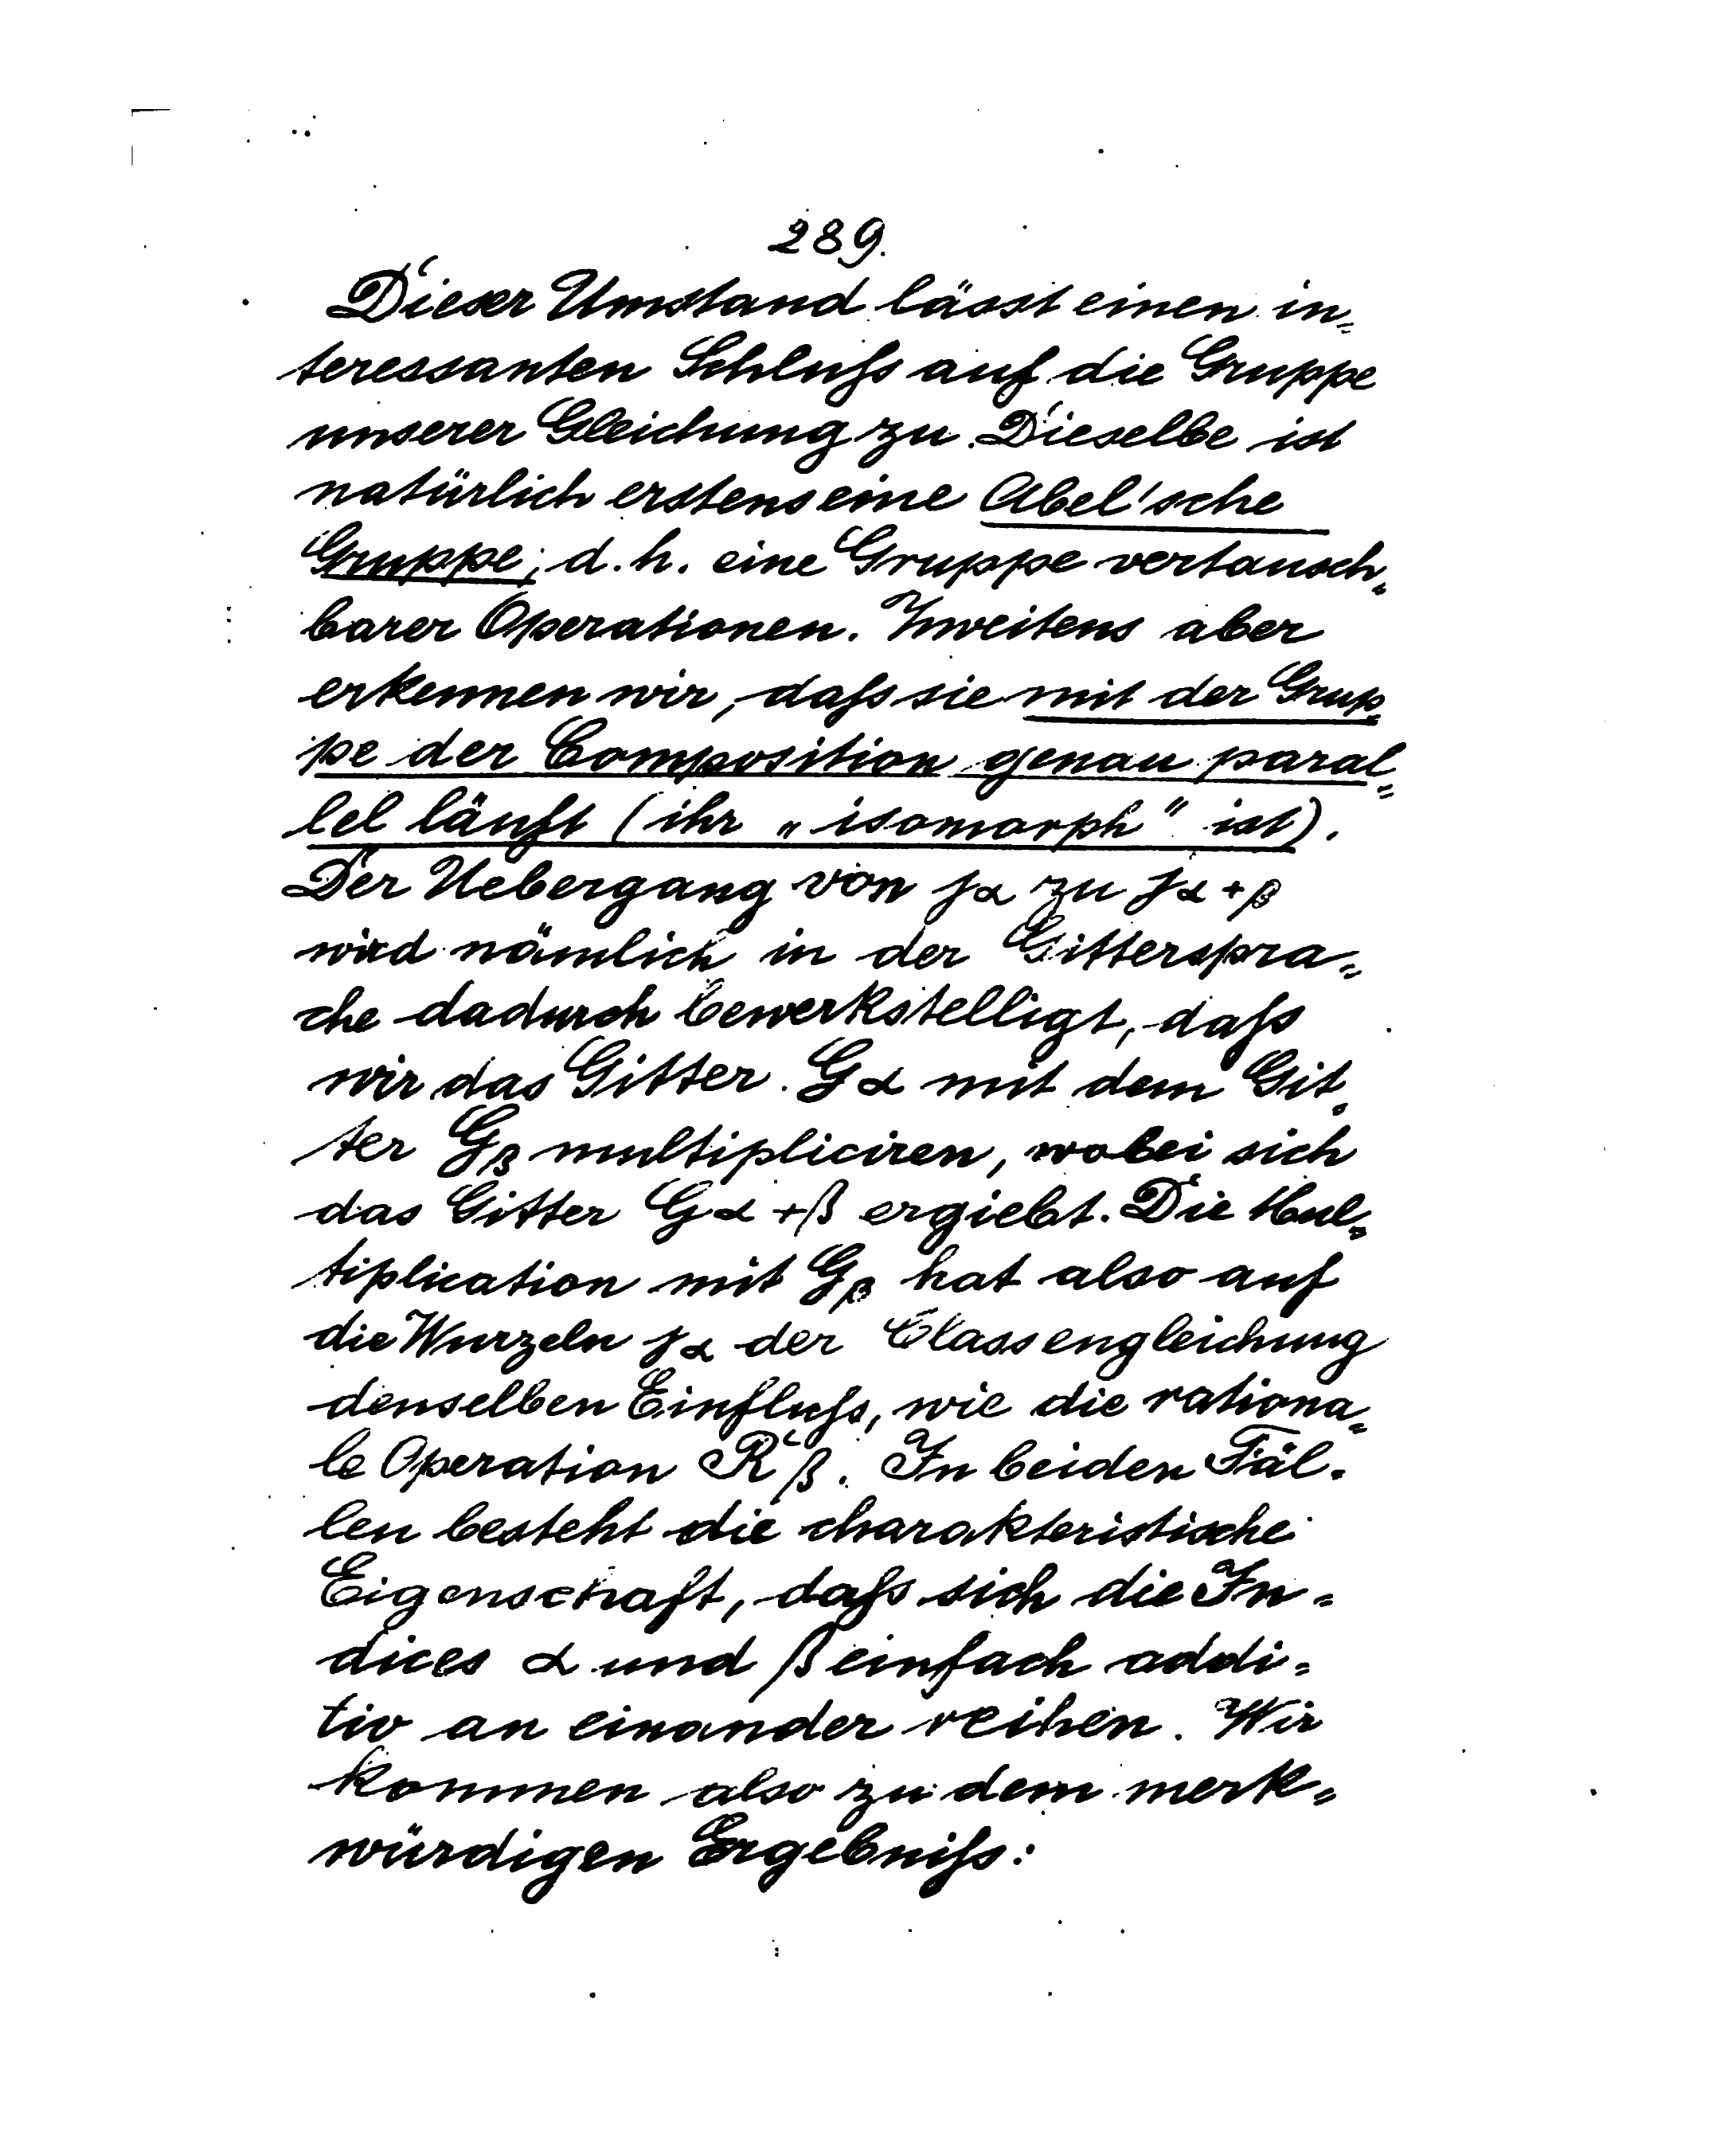 289.
Dieser Umstand lässt einen in=
teressanten Schluß auf die Gruppe
unserer Gleichung zu. Dieselbe ist
natürlich erstens eine Abel'sche
Gruppe, d. h. eine Gruppe vertausch=
barer Operationen. Zweitens aber
erkennen wir, daß sie mit der Grup=
pe der Composition genau paral=
lel läuft (ihr „isomorph" ist).
Der Uebergang von jα zu jα+β
wird nämlich in der Gitterspra=
che dadurch bewerkstelligt, daß
wir das Gitter Gα mit dem Git=
ter Gβ multipliciren, wobei sich
das Gitter Gα+β ergiebt. Die Mul=
tiplication mit Gβ hat also auf
die Wurzeln jα der Classengleichung
denselben Einfluß, wie die rationa=
le Operation Rβ. In beiden Fäl=
len besteht die charakteristische
Eigenschaft, daß sich die In=
dices α und β einfach addi=
tiv an einander reihen. Wir
kommen also zu dem merk=
würdigen Ergebniß: